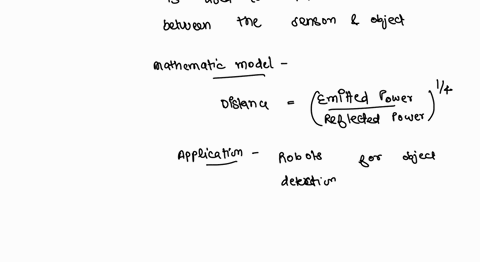 between the sensor & object
Mathematic model -
Distance = (Emitted Power / Reflected Power)^1/4
Application - Robots for object
detection